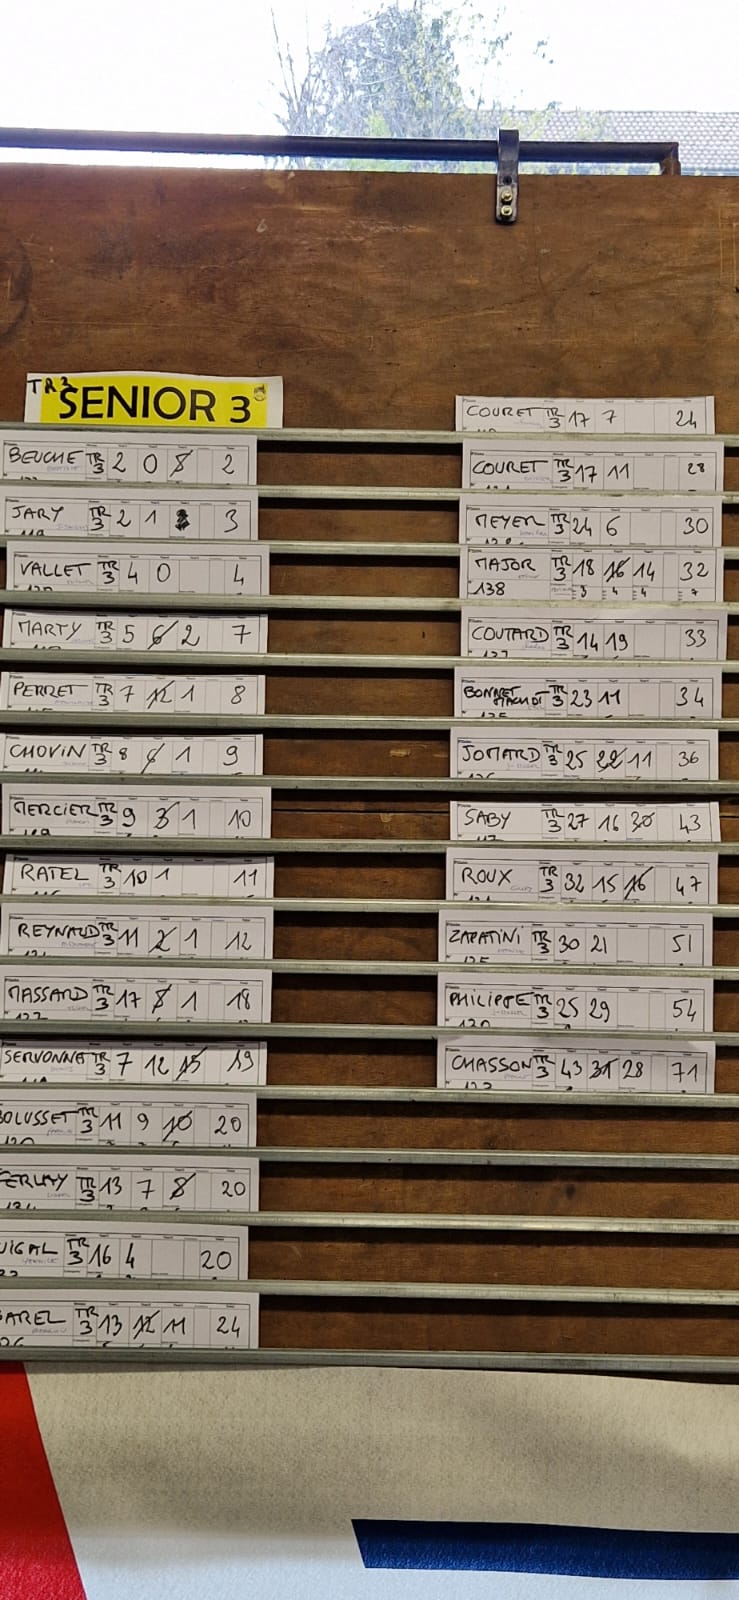 TR 3
SENIOR 3
BEUCHE TR 3 2 0 8 2
JARY TR 3 2 1 3
VALLET TR 3 4 0 4
MARTY TR 3 5 6 2 7
PERRET TR 3 7 12 1 8
CHOVIN TR 3 8 6 1 9
MERCIER TR 3 9 3 1 10
RATEL TR 3 10 1 11
REYNAUD TR 3 11 2 1 12
MASSARD TR 3 17 8 1 18
SERVONNAT TR 3 7 12 15 19
BOLUSSET TR 3 11 9 10 20
FERLAY TR 3 13 7 8 20
UIGAL TR 3 16 4 20
BAREL TR 3 13 12 11 24
COURET TR 3 17 7 24
COURET TR 3 17 11 28
MEYER TR 3 24 6 30
MAJOR TR 3 18 16 14 32
138 3 4 4 7
COUTARD TR 3 14 19 33
BONNET TR 3 23 11 34
JOMARD TR 3 25 22 11 36
SABY TR 3 27 16 30 43
ROUX TR 3 32 15 16 47
ZAPATINI TR 3 30 21 51
PHILIPPE TR 3 25 29 54
CHASSON TR 3 43 31 28 71